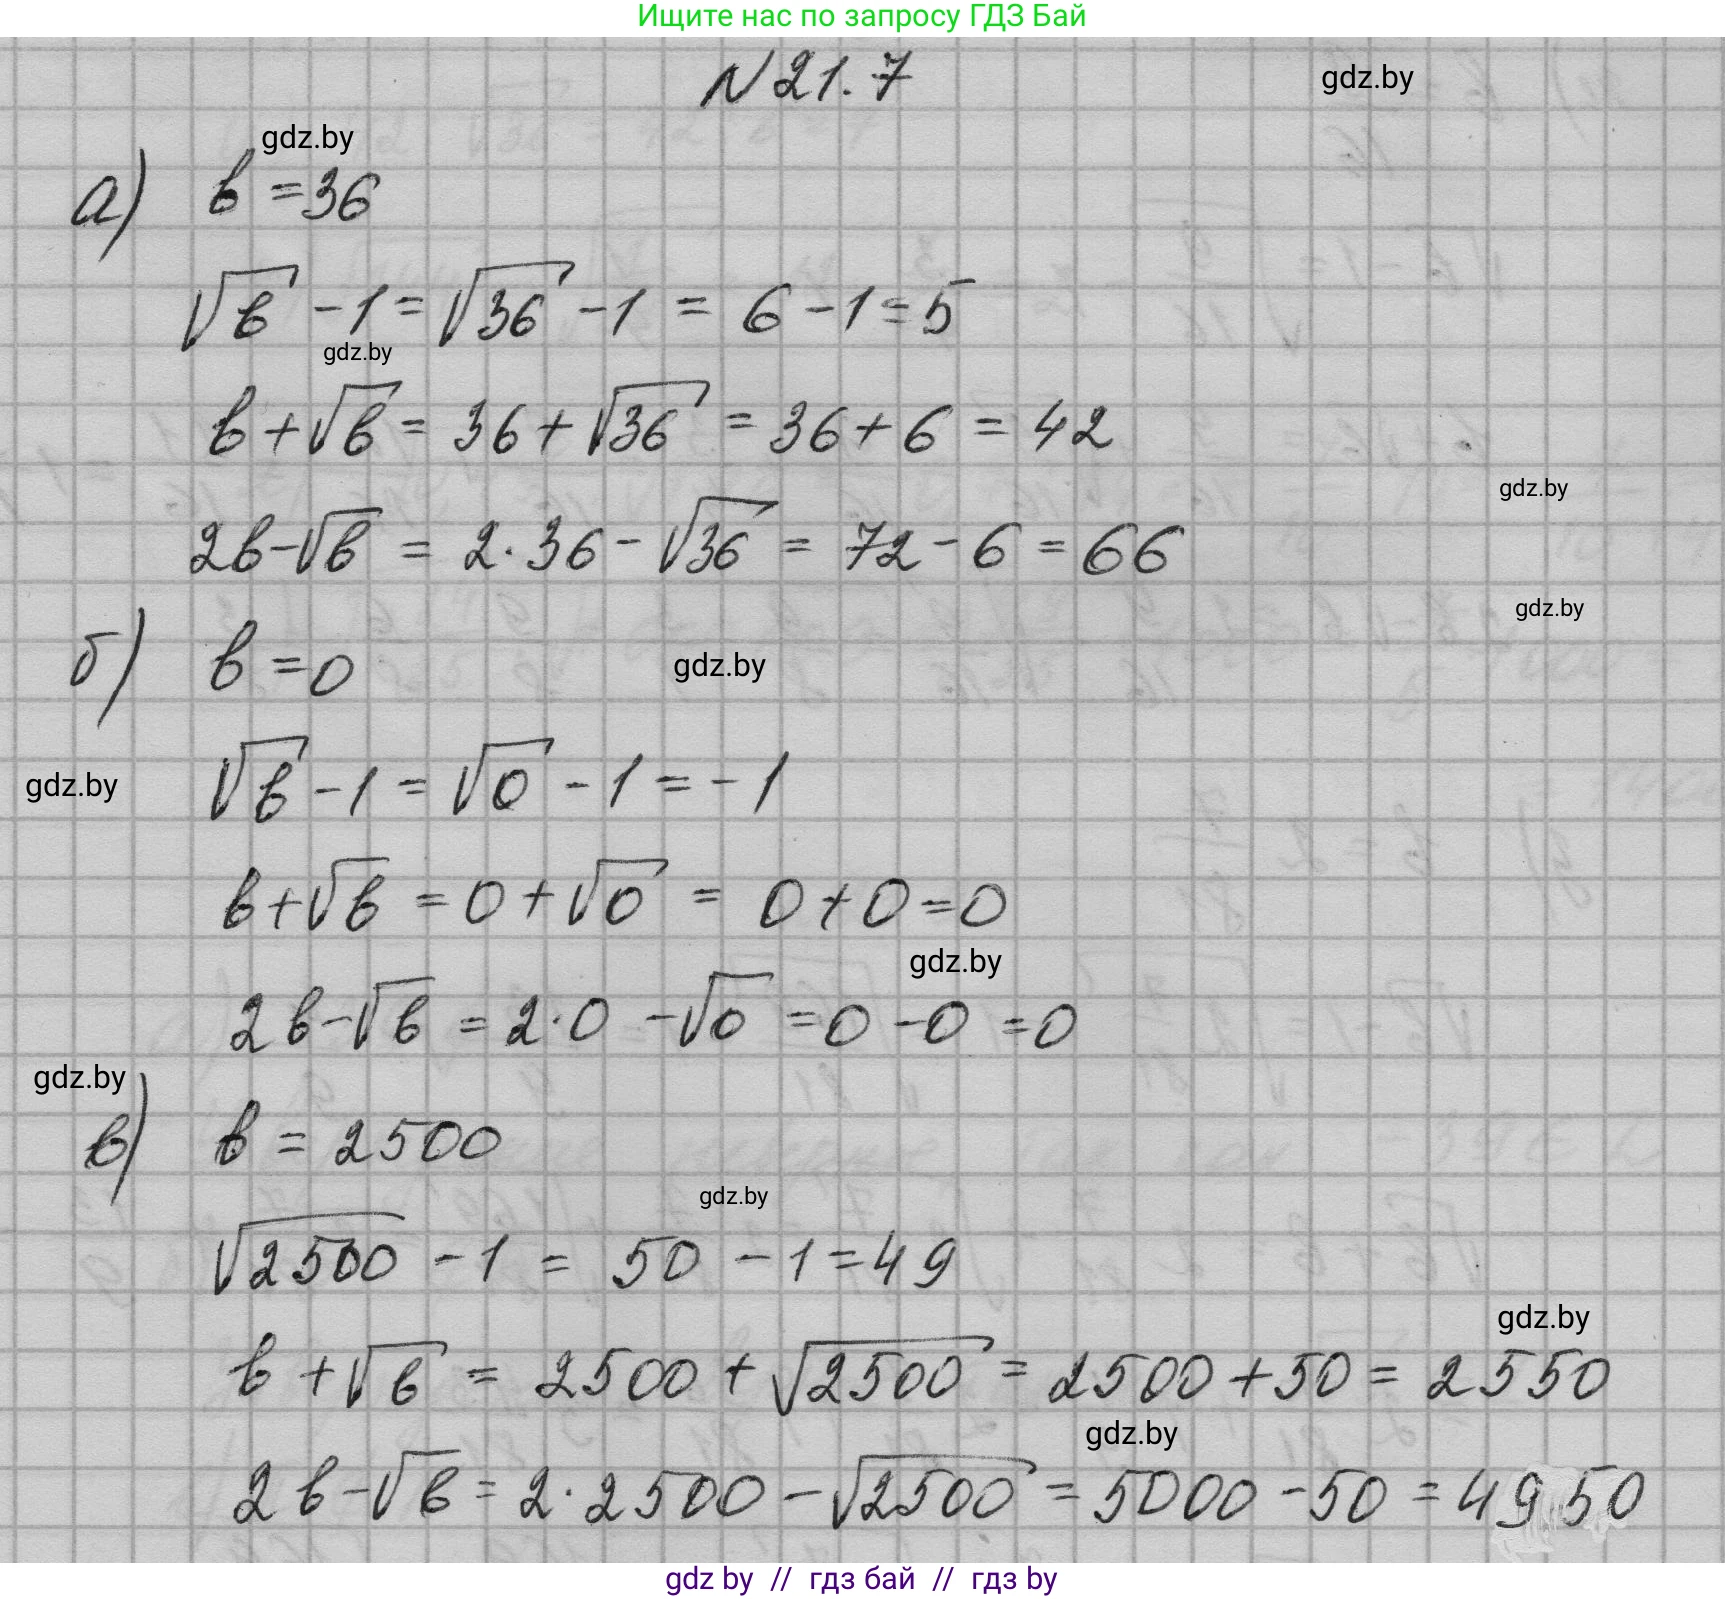 Ищите нас по запросу ГДЗ Бай
N 21.7
gdz.by
gdz.by
а) в = 36
√в - 1 = √36 - 1 = 6 - 1 = 5
gdz.by
в + √в = 36 + √36 = 36 + 6 = 42
gdz.by
2в - √в = 2 · 36 - √36 = 72 - 6 = 66
gdz.by
б) в = 0
gdz.by
gdz.by
√в - 1 = √0 - 1 = -1
в + √в = 0 + √0 = 0 + 0 = 0
gdz.by
2в - √в = 2 · 0 - √0 = 0 - 0 = 0
gdz.by
в) в = 2500
gdz.by
√2500 - 1 = 50 - 1 = 49
gdz.by
в + √в = 2500 + √2500 = 2500 + 50 = 2550
gdz.by
2в - √в = 2 · 2500 - √2500 = 5000 - 50 = 4950
gdz by // гдз бай // гдз by